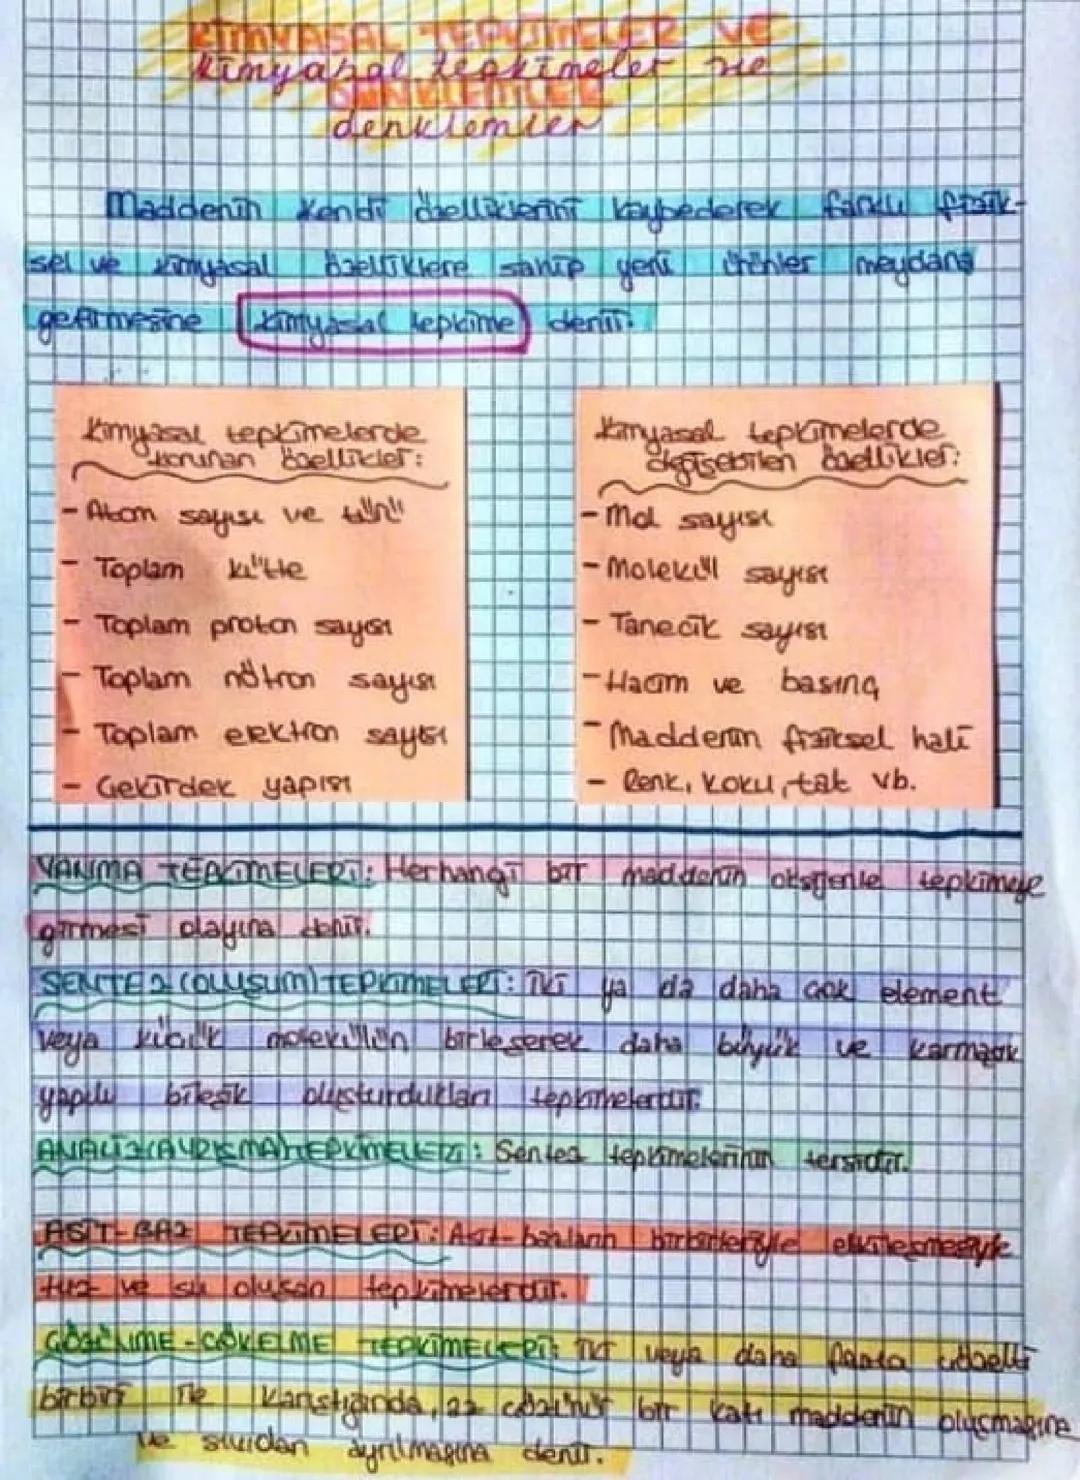 KİMYASAL TEPKİMELER VE
Kimyasal tepkimeler ve
DENKLEMLER
denklemler
Maddenin kendi özelliklerini kaybederek farklı fizik-
sel ve kimyasal özelliklere sahip yeni ürünler meydana
getirmesine kimyasal tepkime denir.
Kimyasal tepkimelerde
korunan özellikler:
- Atom sayısı ve türü
- Toplam kütle
- Toplam proton sayısı
- Toplam nötron sayısı
- Toplam elektron sayısı
- Çekirdek yapısı
Kimyasal tepkimelerde
değişebilen özellikler:
- Mol sayısı
- Molekül sayısı
- Tanecik sayısı
- Hacim ve basınç
- Maddenin fiziksel hali
- Renk, koku, tat vb.
YANMA TEPKİMELERİ: Herhangi bir maddenin oksijenle tepkimeye
girmesi olayına denir.
SENTEZ (OLUŞUM) TEPKİMELERİ: İki ya da daha çok element
veya küçük molekülün birleşerek daha büyük ve karmaşık
yapılı bileşik oluşturdukları tepkimelerdir.
ANALİZ (AYRIŞMA) TEPKİMELERİ: Sentez tepkimelerinin tersidir.
ASİT-BAZ TEPKİMELERİ: Asit-bazların birbirleriyle etkileşmesiyle
tuz ve su oluşan tepkimelerdir.
ÇÖZÜNME-ÇÖKELME TEPKİMELERİ: İki veya daha fazla çözelti
birbiri ile karıştığında, az çözünür bir katı maddenin oluşmasına
ve sıvıdan ayrılmasına denir.